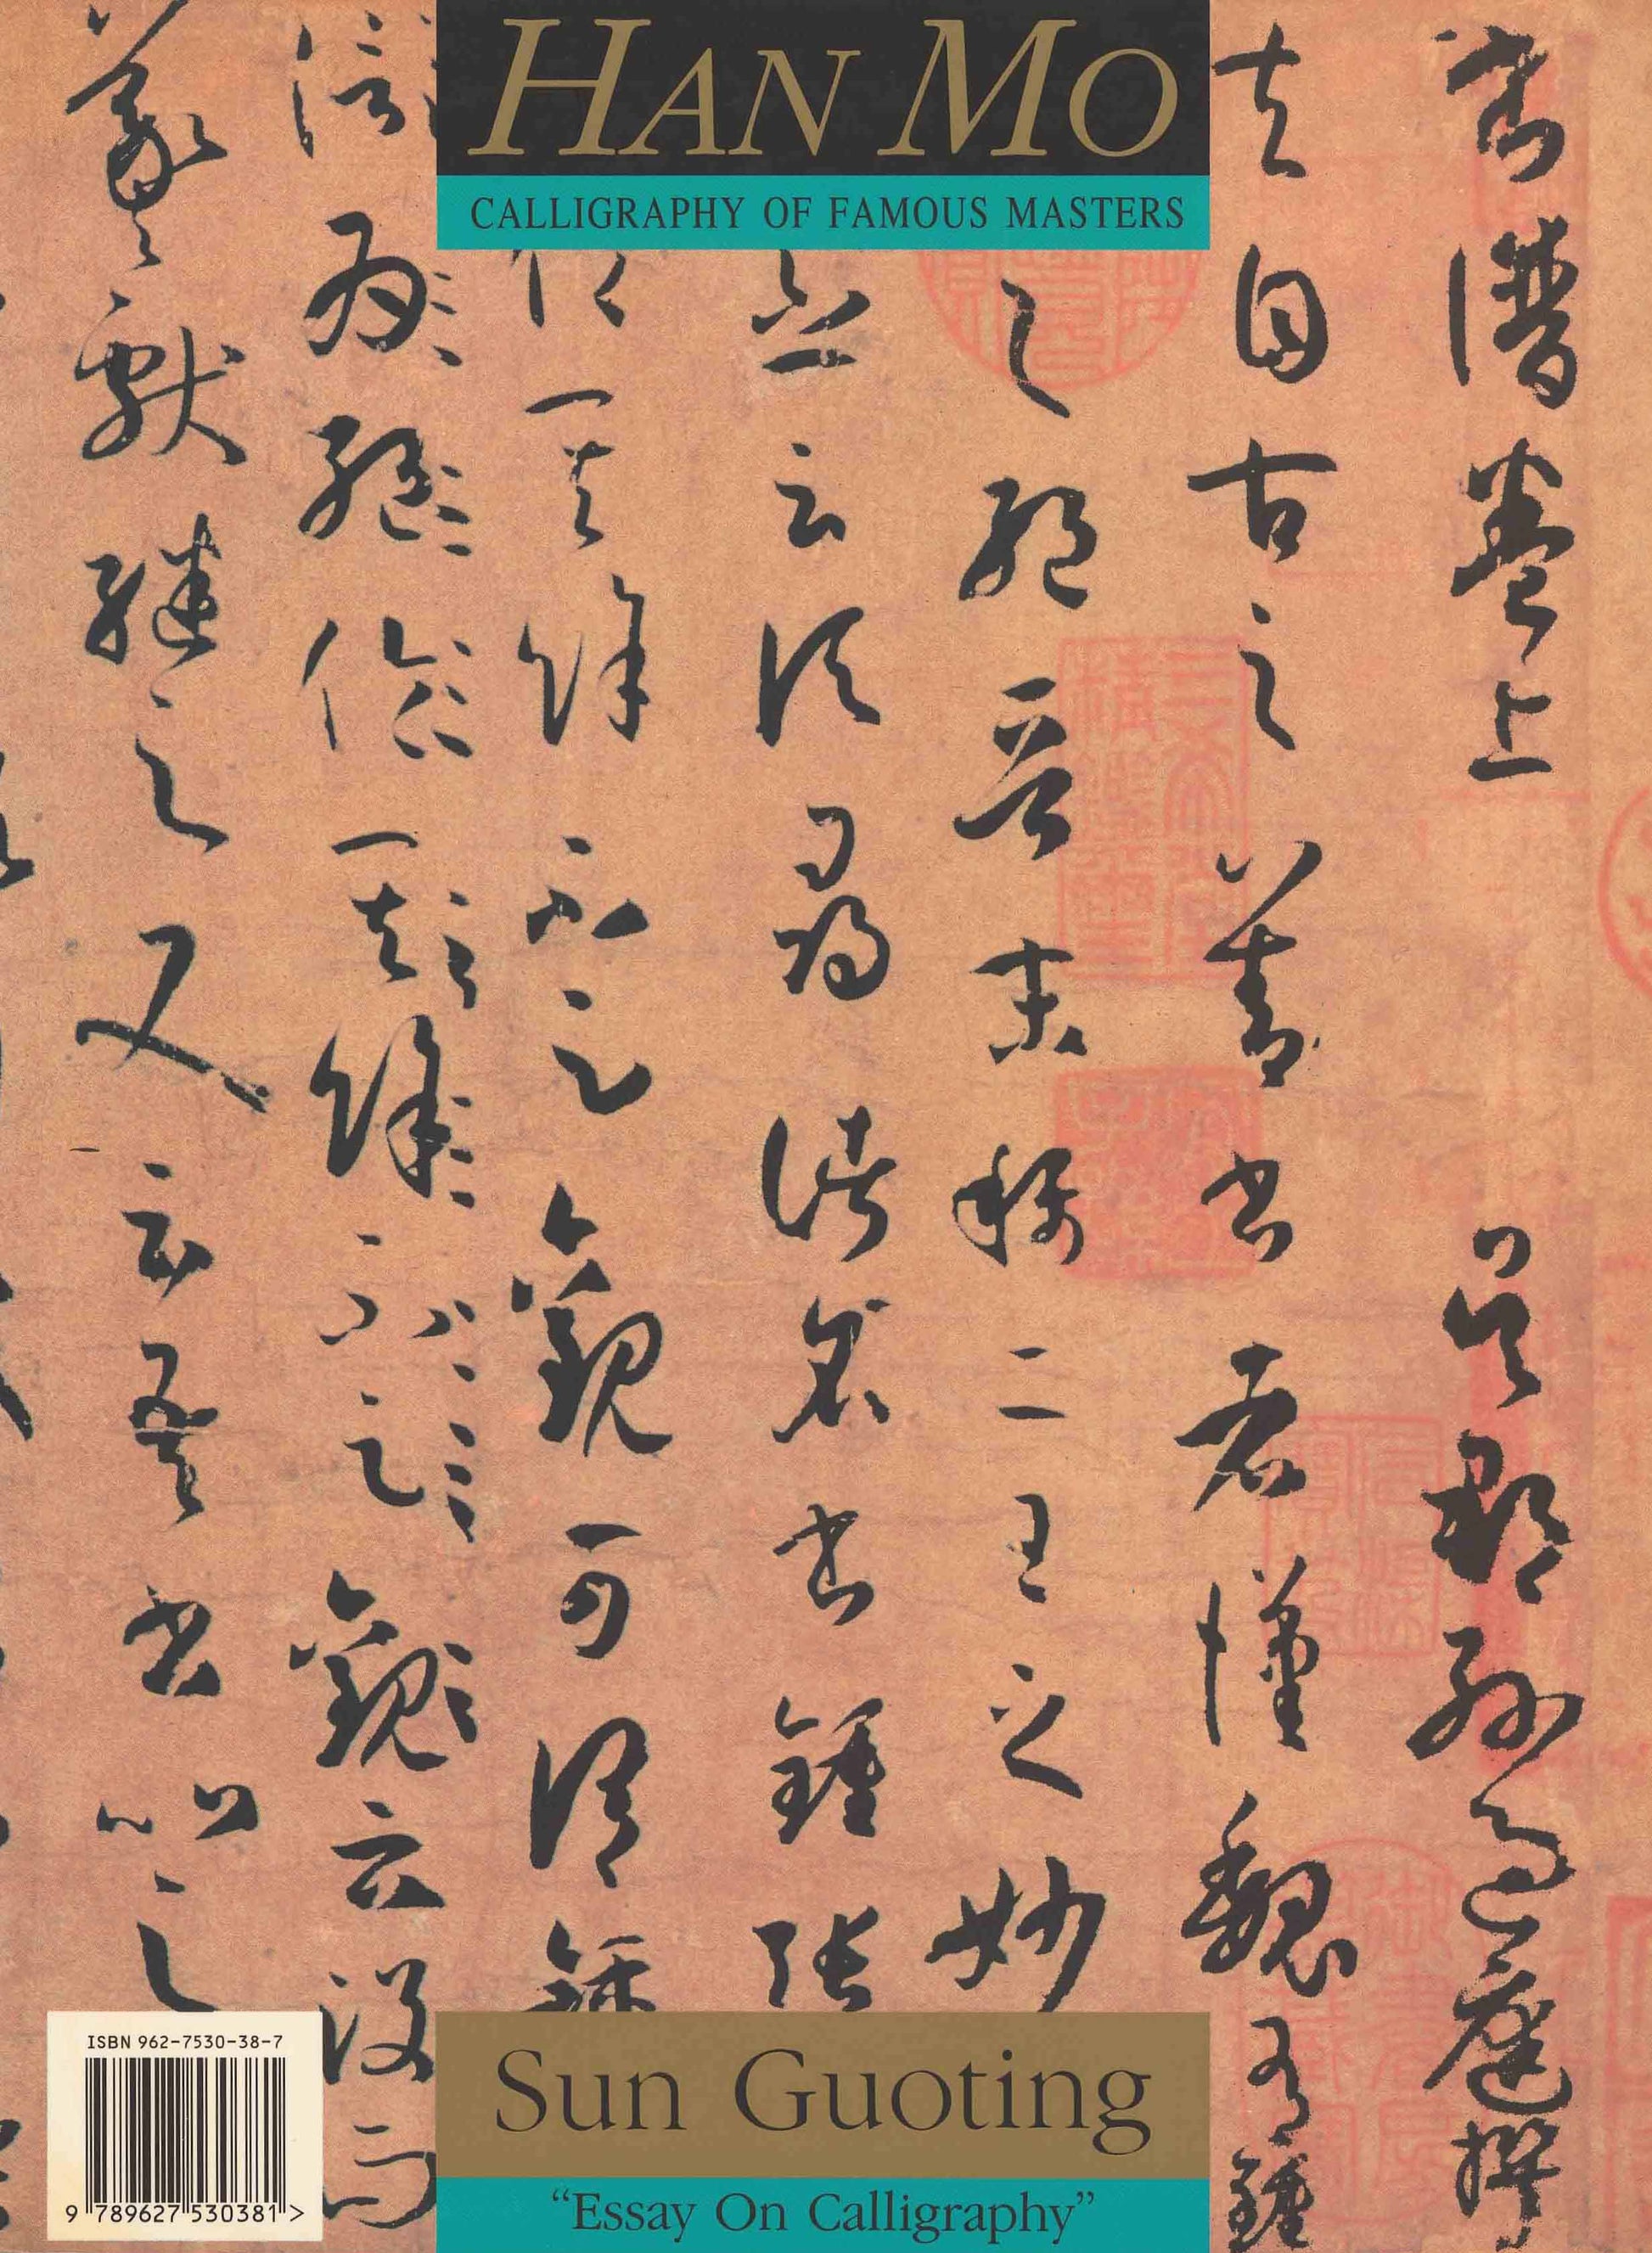 HAN MO
CALLIGRAPHY OF FAMOUS MASTERS
書譜卷上 吳郡孫過庭撰
夫自古之善書者漢魏有鍾
之絕晉末稱二王之妙
云頃尋諸名書鍾張
其餘不足觀可謂鍾
信為絕倫其餘不足觀云沒而
羲獻繼之又云吾書比之
Sun Guoting
“Essay On Calligraphy”
ISBN 962-7530-38-7
9 789627 530381 >